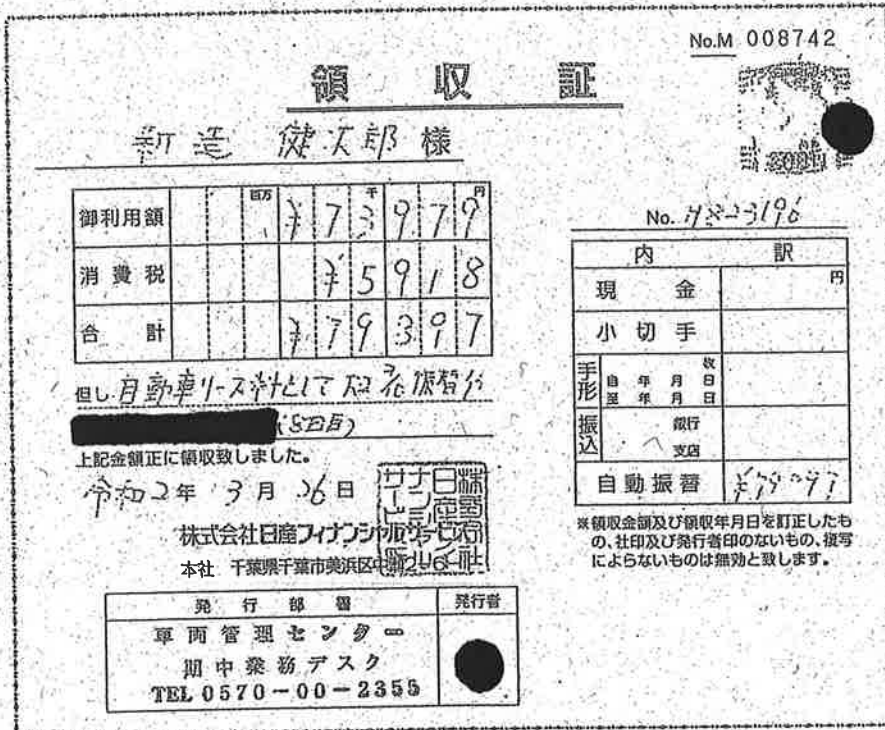 No.M 008742
領収証
新造 健次郎 様
百万 千 円
御利用額 ¥73979
消費税 ¥5918
合計 ¥79897
但し 自動車リース料として 振替分
(8回目)
上記金額正に領収致しました。
令和2年3月26日
株式会社日産フィナンシャルサービス
本社 千葉県千葉市美浜区中瀬2-6-1
発行部署 発行者
車両管理センター
期中業務デスク
TEL 0570-00-2355
No. 4823196
内訳
現金 円
小切手
手形 枚
自 年 月 日
至 年 月 日
振込 銀行
支店
自動振替 ¥79897
※領収金額及び領収年月日を訂正したも
の、社印及び発行者印のないもの、複写
によらないものは無効と致します。